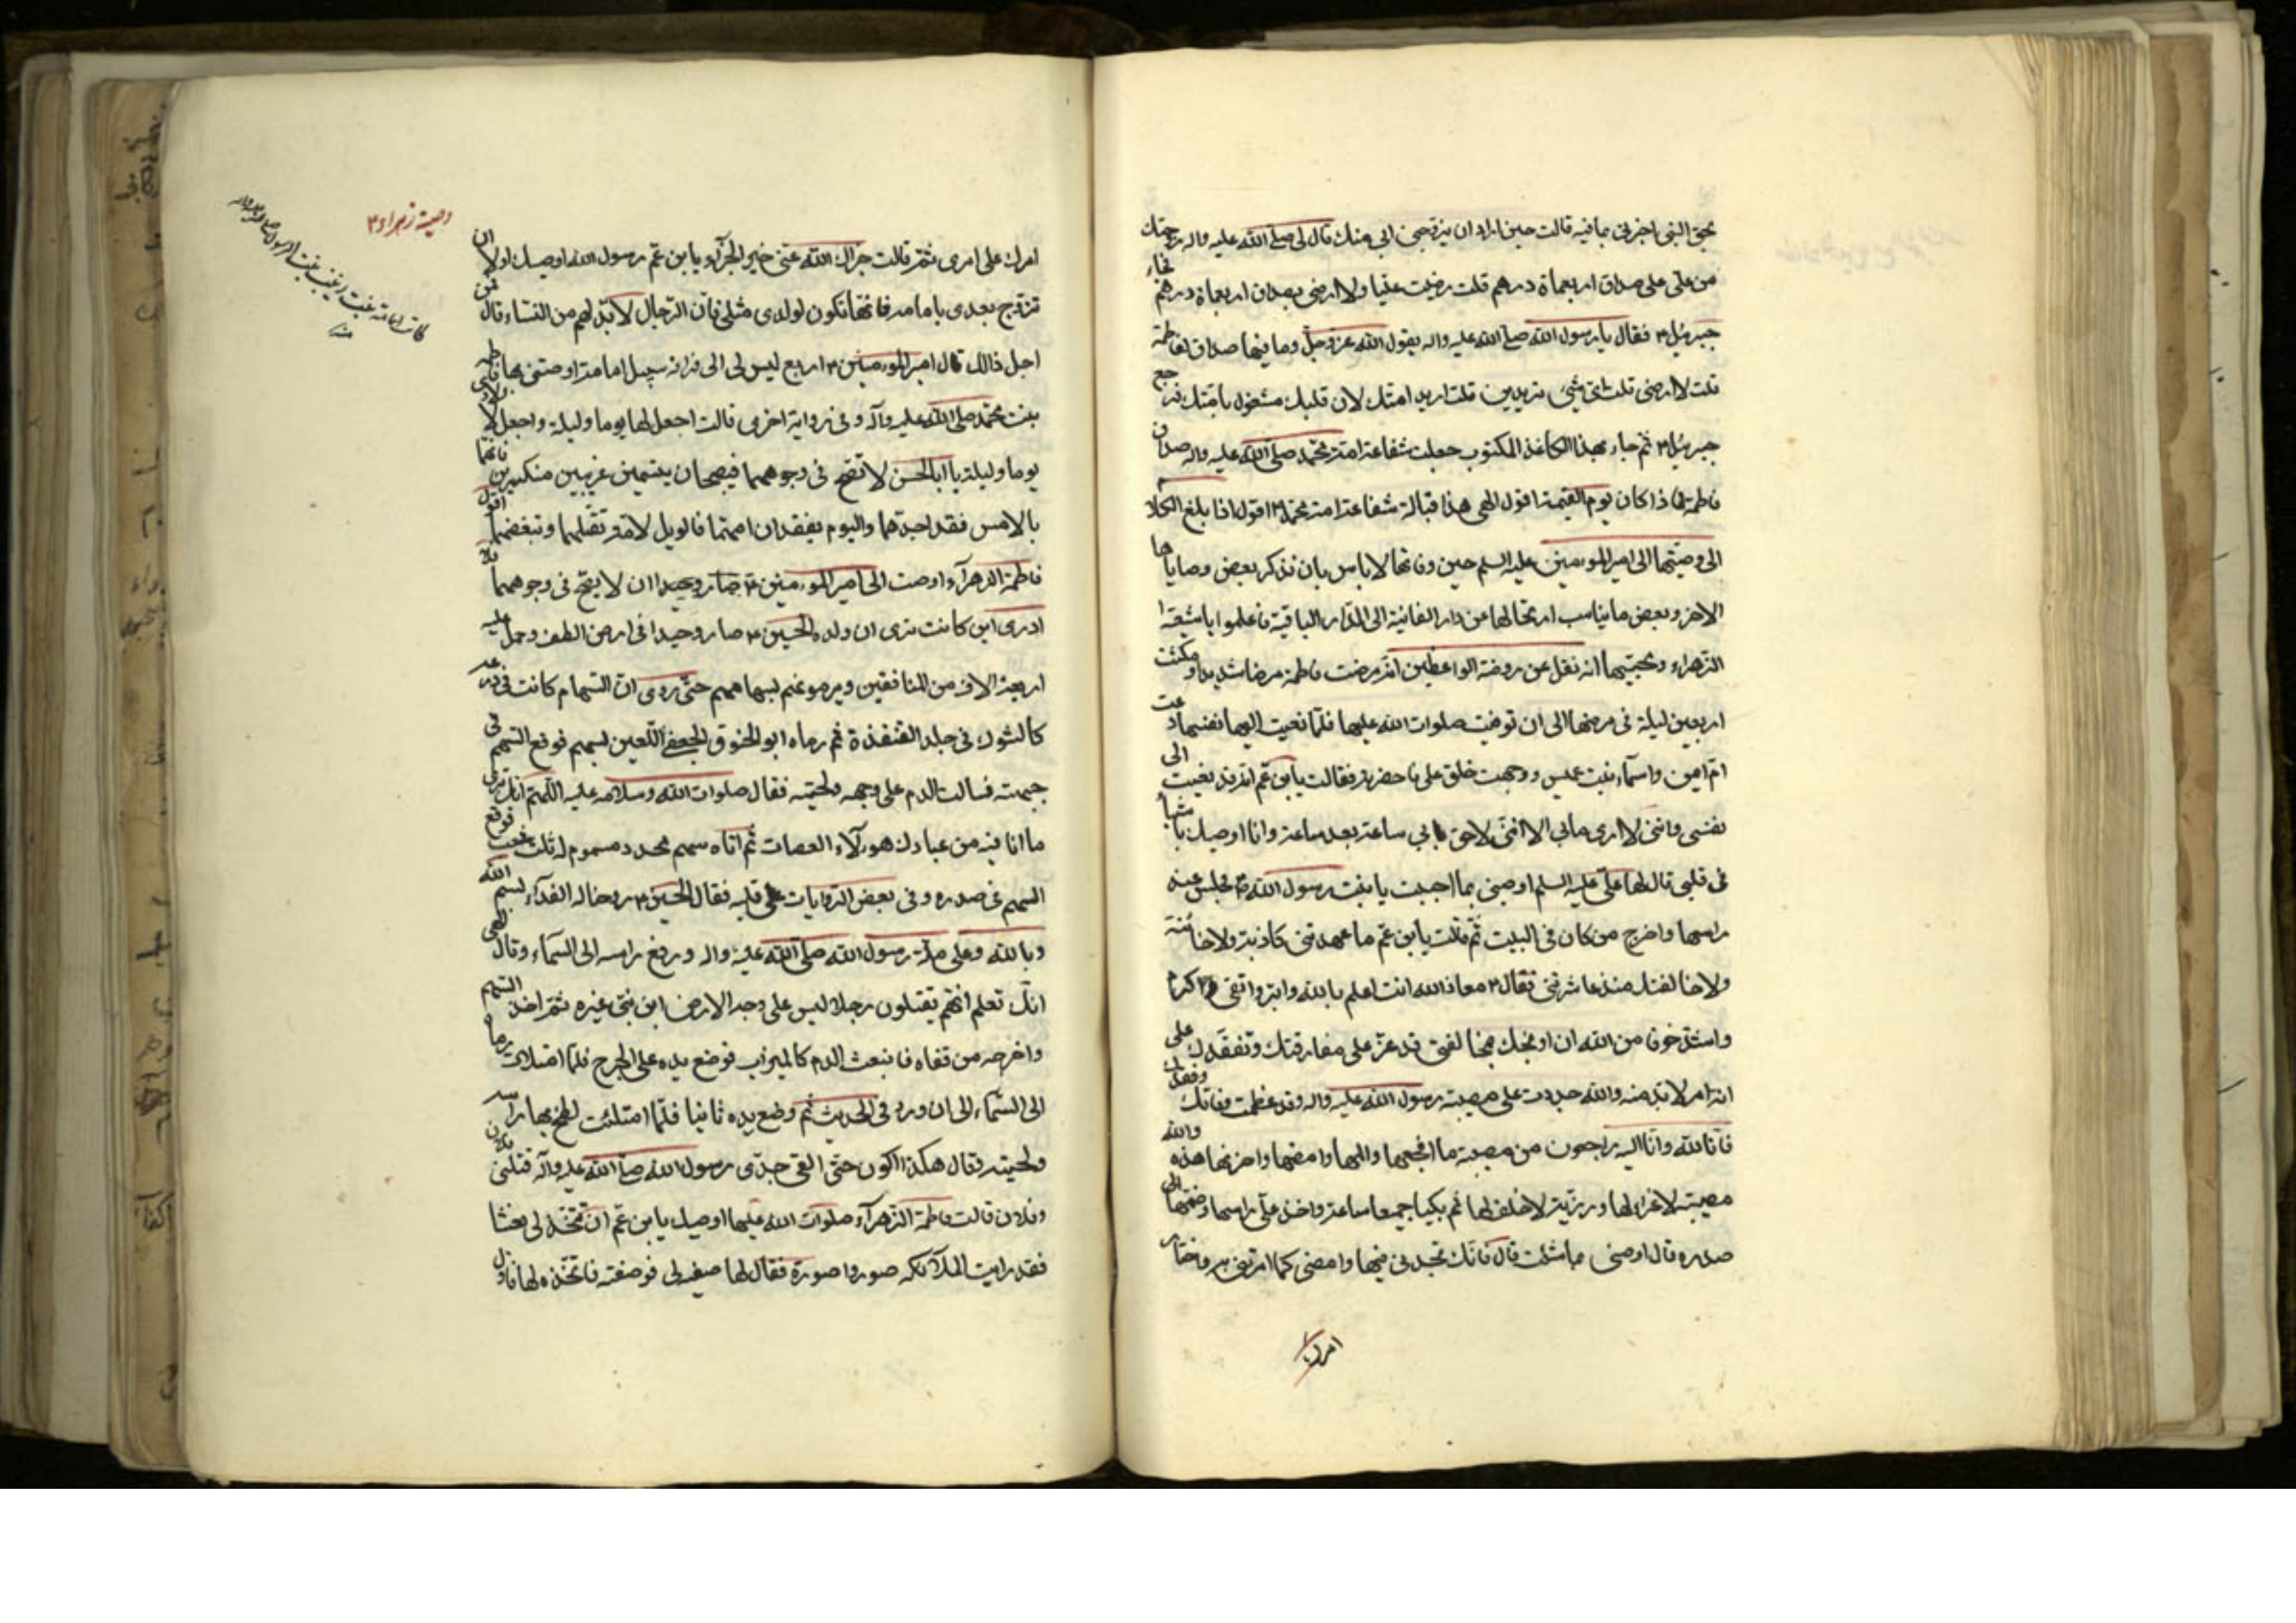 بحق النبي اخبرني بما فيه قالت حين اراد ان يزوجني ابي منك قال لي صلى الله عليه واله زوجتك
من علي على صداق اربعمأة درهم قلت رضيت عليا ولا ارضى بصداق اربعمأة درهم فجاء
جبرئيل ٤ فقال يا رسول الله صلى الله عليه واله يقول الله عز وجل وما فيها صداق لفاطمة
قلت لا ارضى قلت اي شيء تريدين قلت اريد امتك لان قلبك مشغول بامتك فرجع
جبرئيل ٤ ثم جاء بهذا الكاغذ المكتوب جعلت شفاعة امة محمد صلى الله عليه واله صداق
فاطمة فاذا كان يوم القيمة اقول الهى هذا قبالة شفاعة امة محمد اقول اذا بلغ الكلام
الى وصيتها الى امير المؤمنين عليه السلم حين وفاتها لا باس بان نذكر بعض وصاياها
الاخر وبعض ما يناسب ارتحالها عن دار الفانية الى الدار الباقية فاعلموا يا شيعة
الزهراء ومحبيها انه نقل عن روضة الواعظين انه مرضت فاطمة مرضا شديدا ومكثت
اربعين ليلة في مرضها الى ان توفيت صلوات الله عليها فلما نعيت اليها نفسها دعت
ام ايمن واسمآء بنت عميس ووجهت خلف علي فاحضرته فقالت يا بن عم انه قد نعيت الى
نفسي وانني لا ارى ما بي الا انني لاحق بابي ساعة بعد ساعة وانا اوصيك باشيآء
في قلبي قال لها علي عليه السلم اوصيني بما احببت يا بنت رسول الله ٣ فجلس عند
راسها واخرج من كان في البيت ثم قالت يا بن عم ما عهدتني كاذبة ولا خائنة
ولا خالفتك منذ عاشرتني فقال ٤ معاذ الله انت اعلم بالله وابر واتقى واكرم
واشد خوفا من الله ان اوبخك بمخالفتي قد عز علي مفارقتك وتفقدك على
انه امر لا بد منه والله جددت علي مصيبة رسول الله عليه واله وقد عظمت وفاتك وفقدك
فانا لله وانا اليه راجعون من مصيبة ما افجعها والمها وامضها واحزنها هذه والله
مصيبة لا عزاء لها ورزية لا خلف لها ثم بكيا جميعا ساعة واخذ علي راسها وضمها الى
صدره قال اوصني ما شئت قال فانك تجدني فيها وامضي كما امرتني به واختار
امرك
وصية زهراء ٤
امرك على امري ثم قالت جزاك الله عني خير الجزآء يا بن عم رسول الله اوصيك اولا ان
تزوج بعدي بامامه فانها تكون لولدي مثلي فان الرجال لا بد لهم من النساء قال فمن
اجل ذالك قال امير المؤمنين ٤ اربع ليس لي الى فراقه سبيل امامة اوصتني بها فاطمة
بنت محمد صلى الله عليه وآله وفي رواية اخرى قالت اجعل لها يوما وليلة واجعل لاولادي
يوما وليلة يا ابا الحسن لا تصح في وجوههما فيصبحان يتيمين غريبين منكسرين فانهما
بالامس فقدا جدهما واليوم يفقدان امهما فالويل لامة تقتلهما وتبغضهما اقول
فاطمة الزهرآء اوصت الى امير المؤمنين ٤ ان لا يصح في وجوههما فلا
ادري اين كانت ترى ان ولده الحسين ٤ صار وحيدا في ارض الطف وحمل عليه
اربعة الاف من المنافقين ويرمونهم بسهامهم حتى روي ان السهام كانت في درعه
كالشوك في جلد القنفذة ثم رماه ابو الحنوق الجعفي اللعين بسهم فوقع السهم في
جبهته فسالت الدم على وجهه ولحيته فقال صلوات الله وسلامه عليه اللهم انك ترى
ما انا فيه من عبادك هؤلآء العصات ثم اتاه سهم محدد مسموم له ثلث شعب فوقع
السهم في صدره وفي بعض الروايات على قلبه فقال الحسين ٤ روحنا له الفدآء بسم الله
وبالله وعلى ملة رسول الله صلى الله عليه واله ورفع راسه الى السمآء وقال الهى
انك تعلم انهم يقتلون رجلا ليس على وجه الارض ابن نبي غيره ثم اخذ السهم
واخرجه من قفاه فانبعث الدم كالميزاب فوضع يده على الجرح فلما امتلات رماه
الى السمآء الى ان ورد في الحديث ثم وضع يده ثانيا فلما امتلئت لطخ بها راسه
ولحيته وقال هكذا اكون حتى القى جدي رسول الله صلى الله عليه وآله قتلني فلان
وفلان قالت فاطمة الزهرآء صلوات الله عليها اوصيك يا بن عم ان تتخذ لي نعشا
فقد رايت الملآئكه صوروا صورة فقال لها صفيه لي فوصفته فاتخذه لها فاول